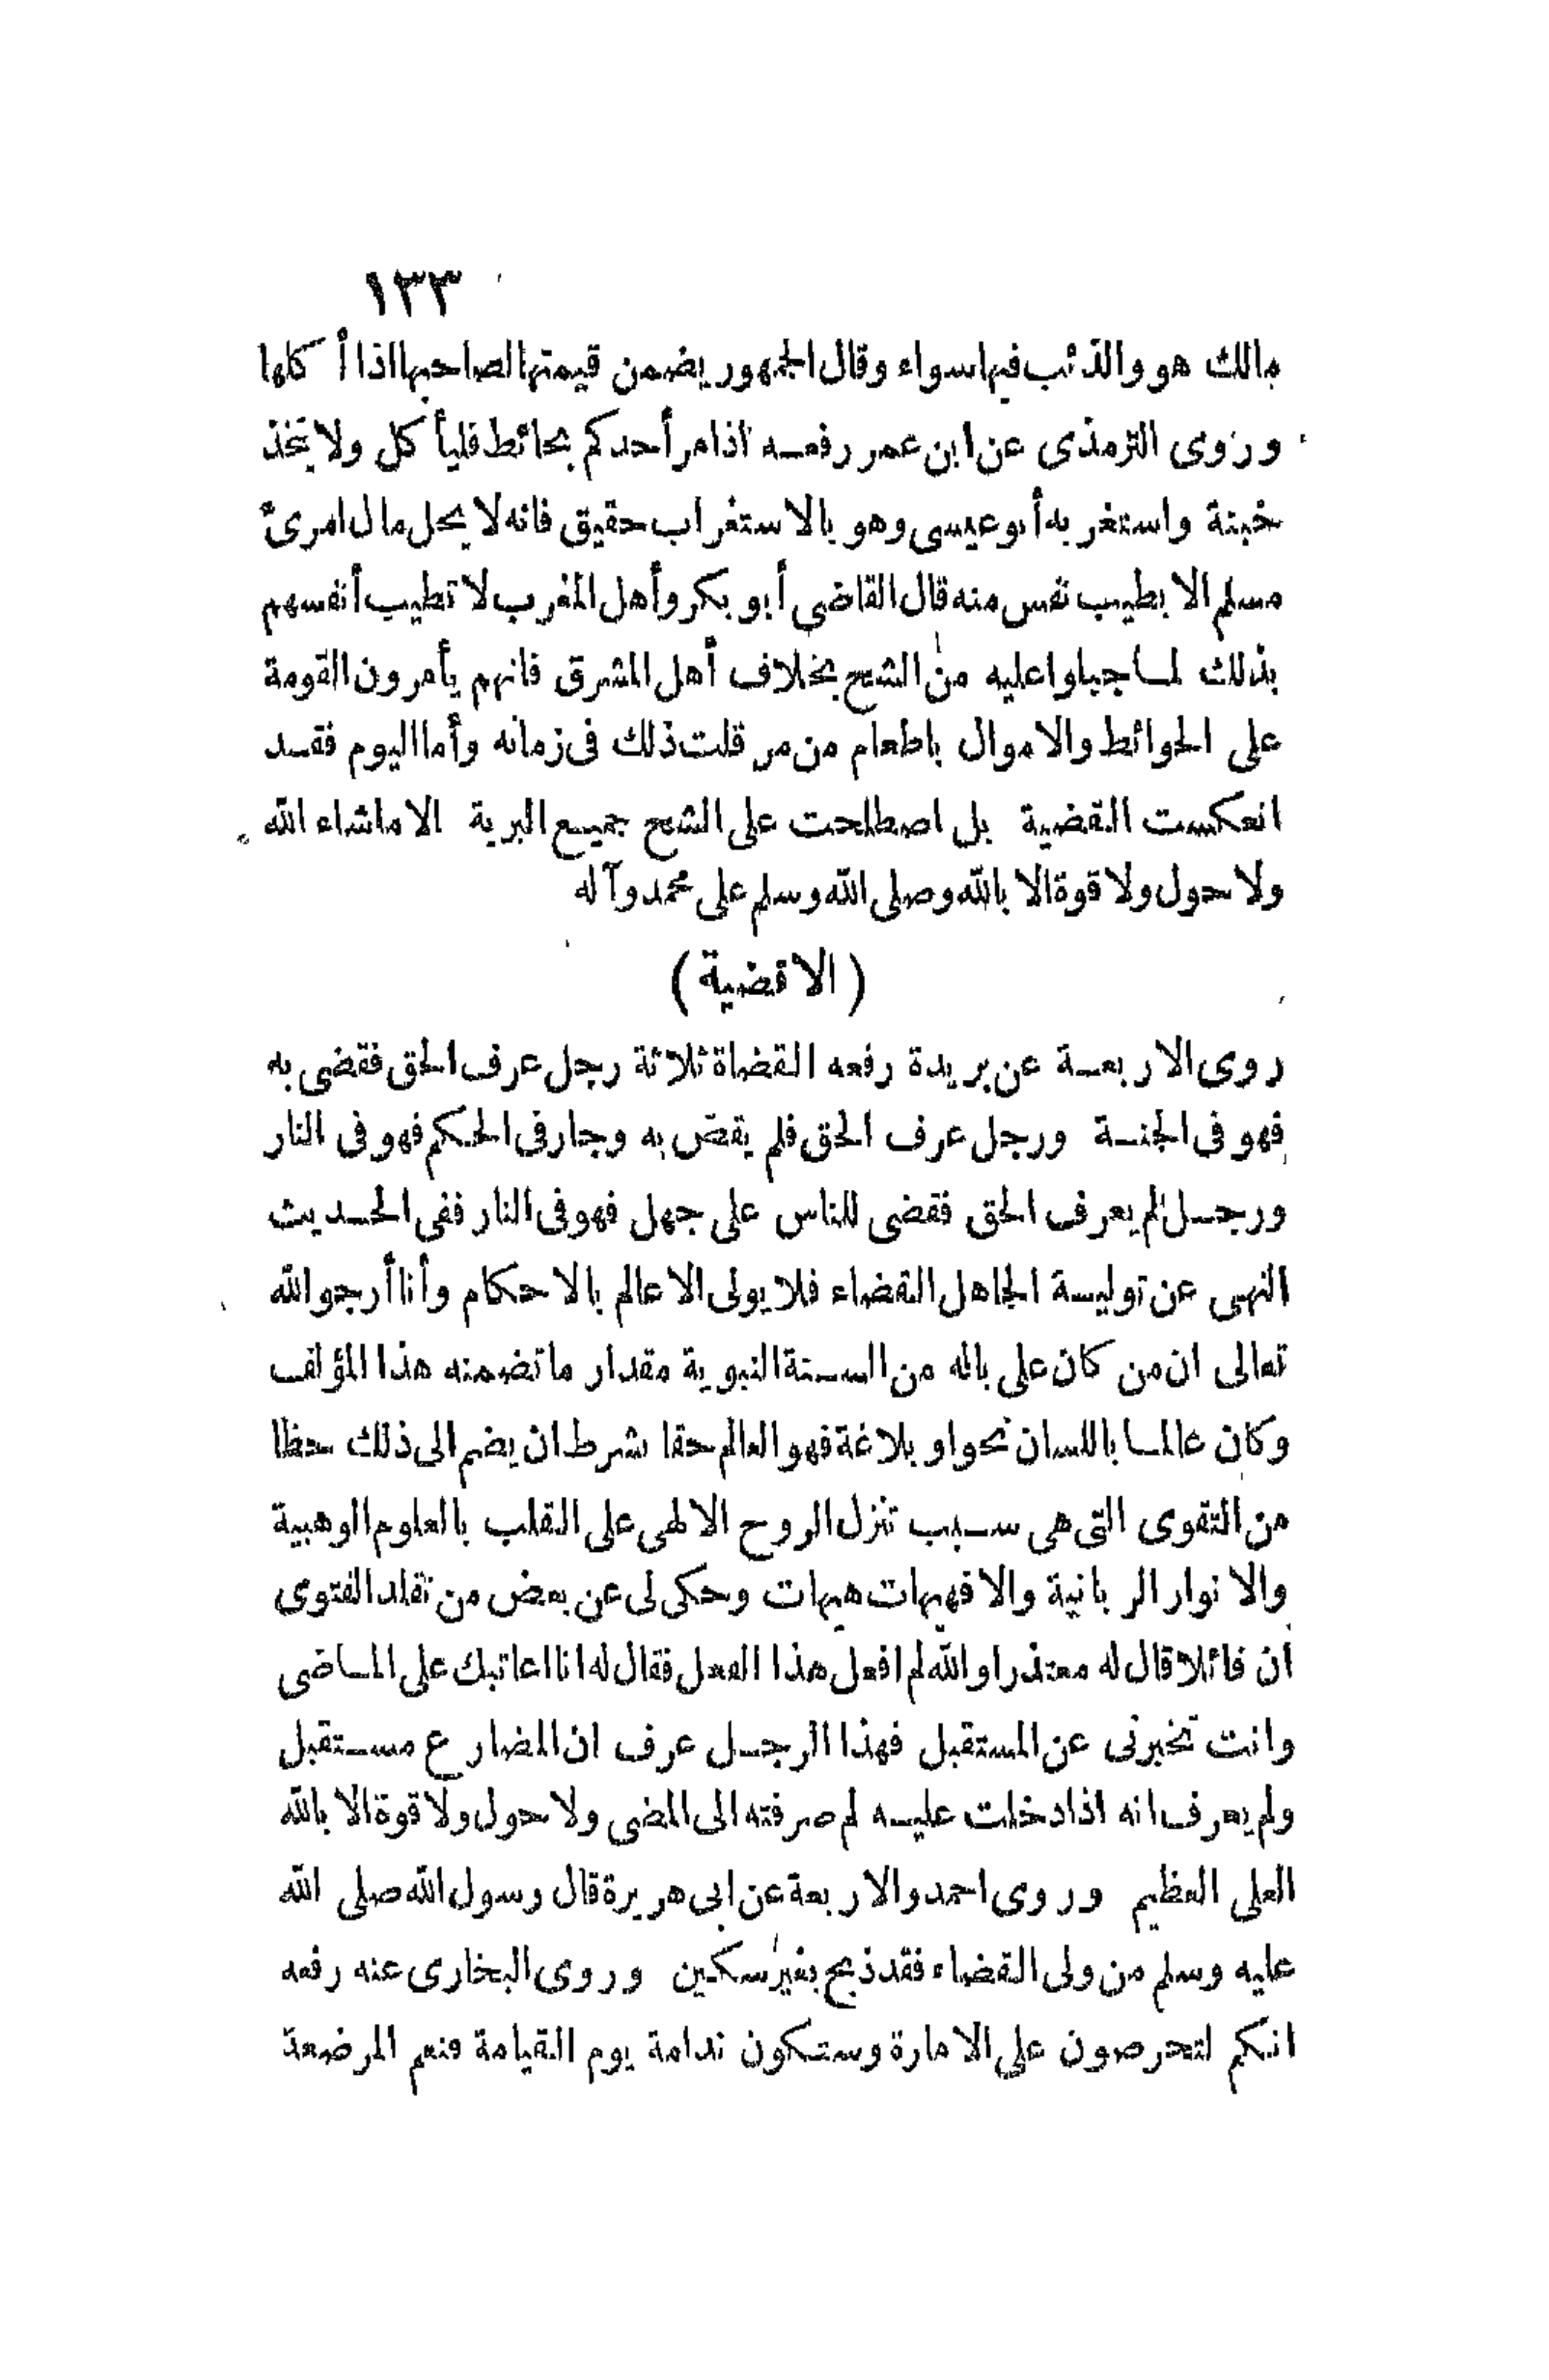 ١٣٣
مالك هو والذئب فيها سواء وقال الجمهور يضمن قيمتها لصاحبها اذا أكلها
وروى الترمذى عن ابن عمر رفعه اذا مر أحدكم بحائط فليأكل ولا يتخذ
خبنة واستغربه أبو عيسى وهو بالاستغراب حقيق فانه لا يحل مال امرئ
مسلم الا بطيب نفس منه قال القاضى أبو بكر وأهل المغرب لا تطيب أنفسهم
بذلك لما جبلوا عليه من الشح بخلاف أهل المشرق فانهم يأمرون القومة
على الحوائط والاموال باطعام من مر قلت ذلك فى زمانه وأما اليوم فقد
انعكست القضية بل اصطلحت على الشح جميع البرية الا ماشاء الله
ولا حول ولا قوة الا بالله وصلى الله وسلم على محمد وآله
(الاقضية)
روى الاربعة عن بريدة رفعه القضاة ثلاثة رجل عرف الحق فقضى به
فهو فى الجنة ورجل عرف الحق فلم يقض به وجار فى الحكم فهو فى النار
ورجل لم يعرف الحق فقضى للناس على جهل فهو فى النار ففى الحديث
النهى عن تولية الجاهل القضاء فلا يولى الا عالم بالاحكام وأنا أرجو الله
تعالى ان من كان على باله من السنة النبوية مقدار ما تضمنه هذا المؤلف
وكان عالما باللسان نحوا وبلاغة فهو العالم حقا شرط ان يضم الى ذلك حظا
من التقوى التى هى سبب تنزل الروح الالهى على القلب بالعلوم الوهبية
والانوار الربانية والا فهيهات هيهات وحكى لى عن بعض من تقلد الفتوى
ان قائلا قال له معتذرا والله لم افعل هذا الفعل فقال له انا اعاتبك على الماضى
وانت تخبرنى عن المستقبل فهذا الرجل عرف ان المضارع مستقبل
ولم يعرف انه اذا دخلت عليه لم صرفته الى المضى ولا حول ولا قوة الا بالله
العلى العظيم وروى احمد والاربعة عن ابى هريرة قال رسول الله صلى الله
عليه وسلم من ولى القضاء فقد ذبح بغير سكين وروى البخارى عنه رفعه
انكم لتحرصون على الامارة وستكون ندامة يوم القيامة فنعم المرضعة